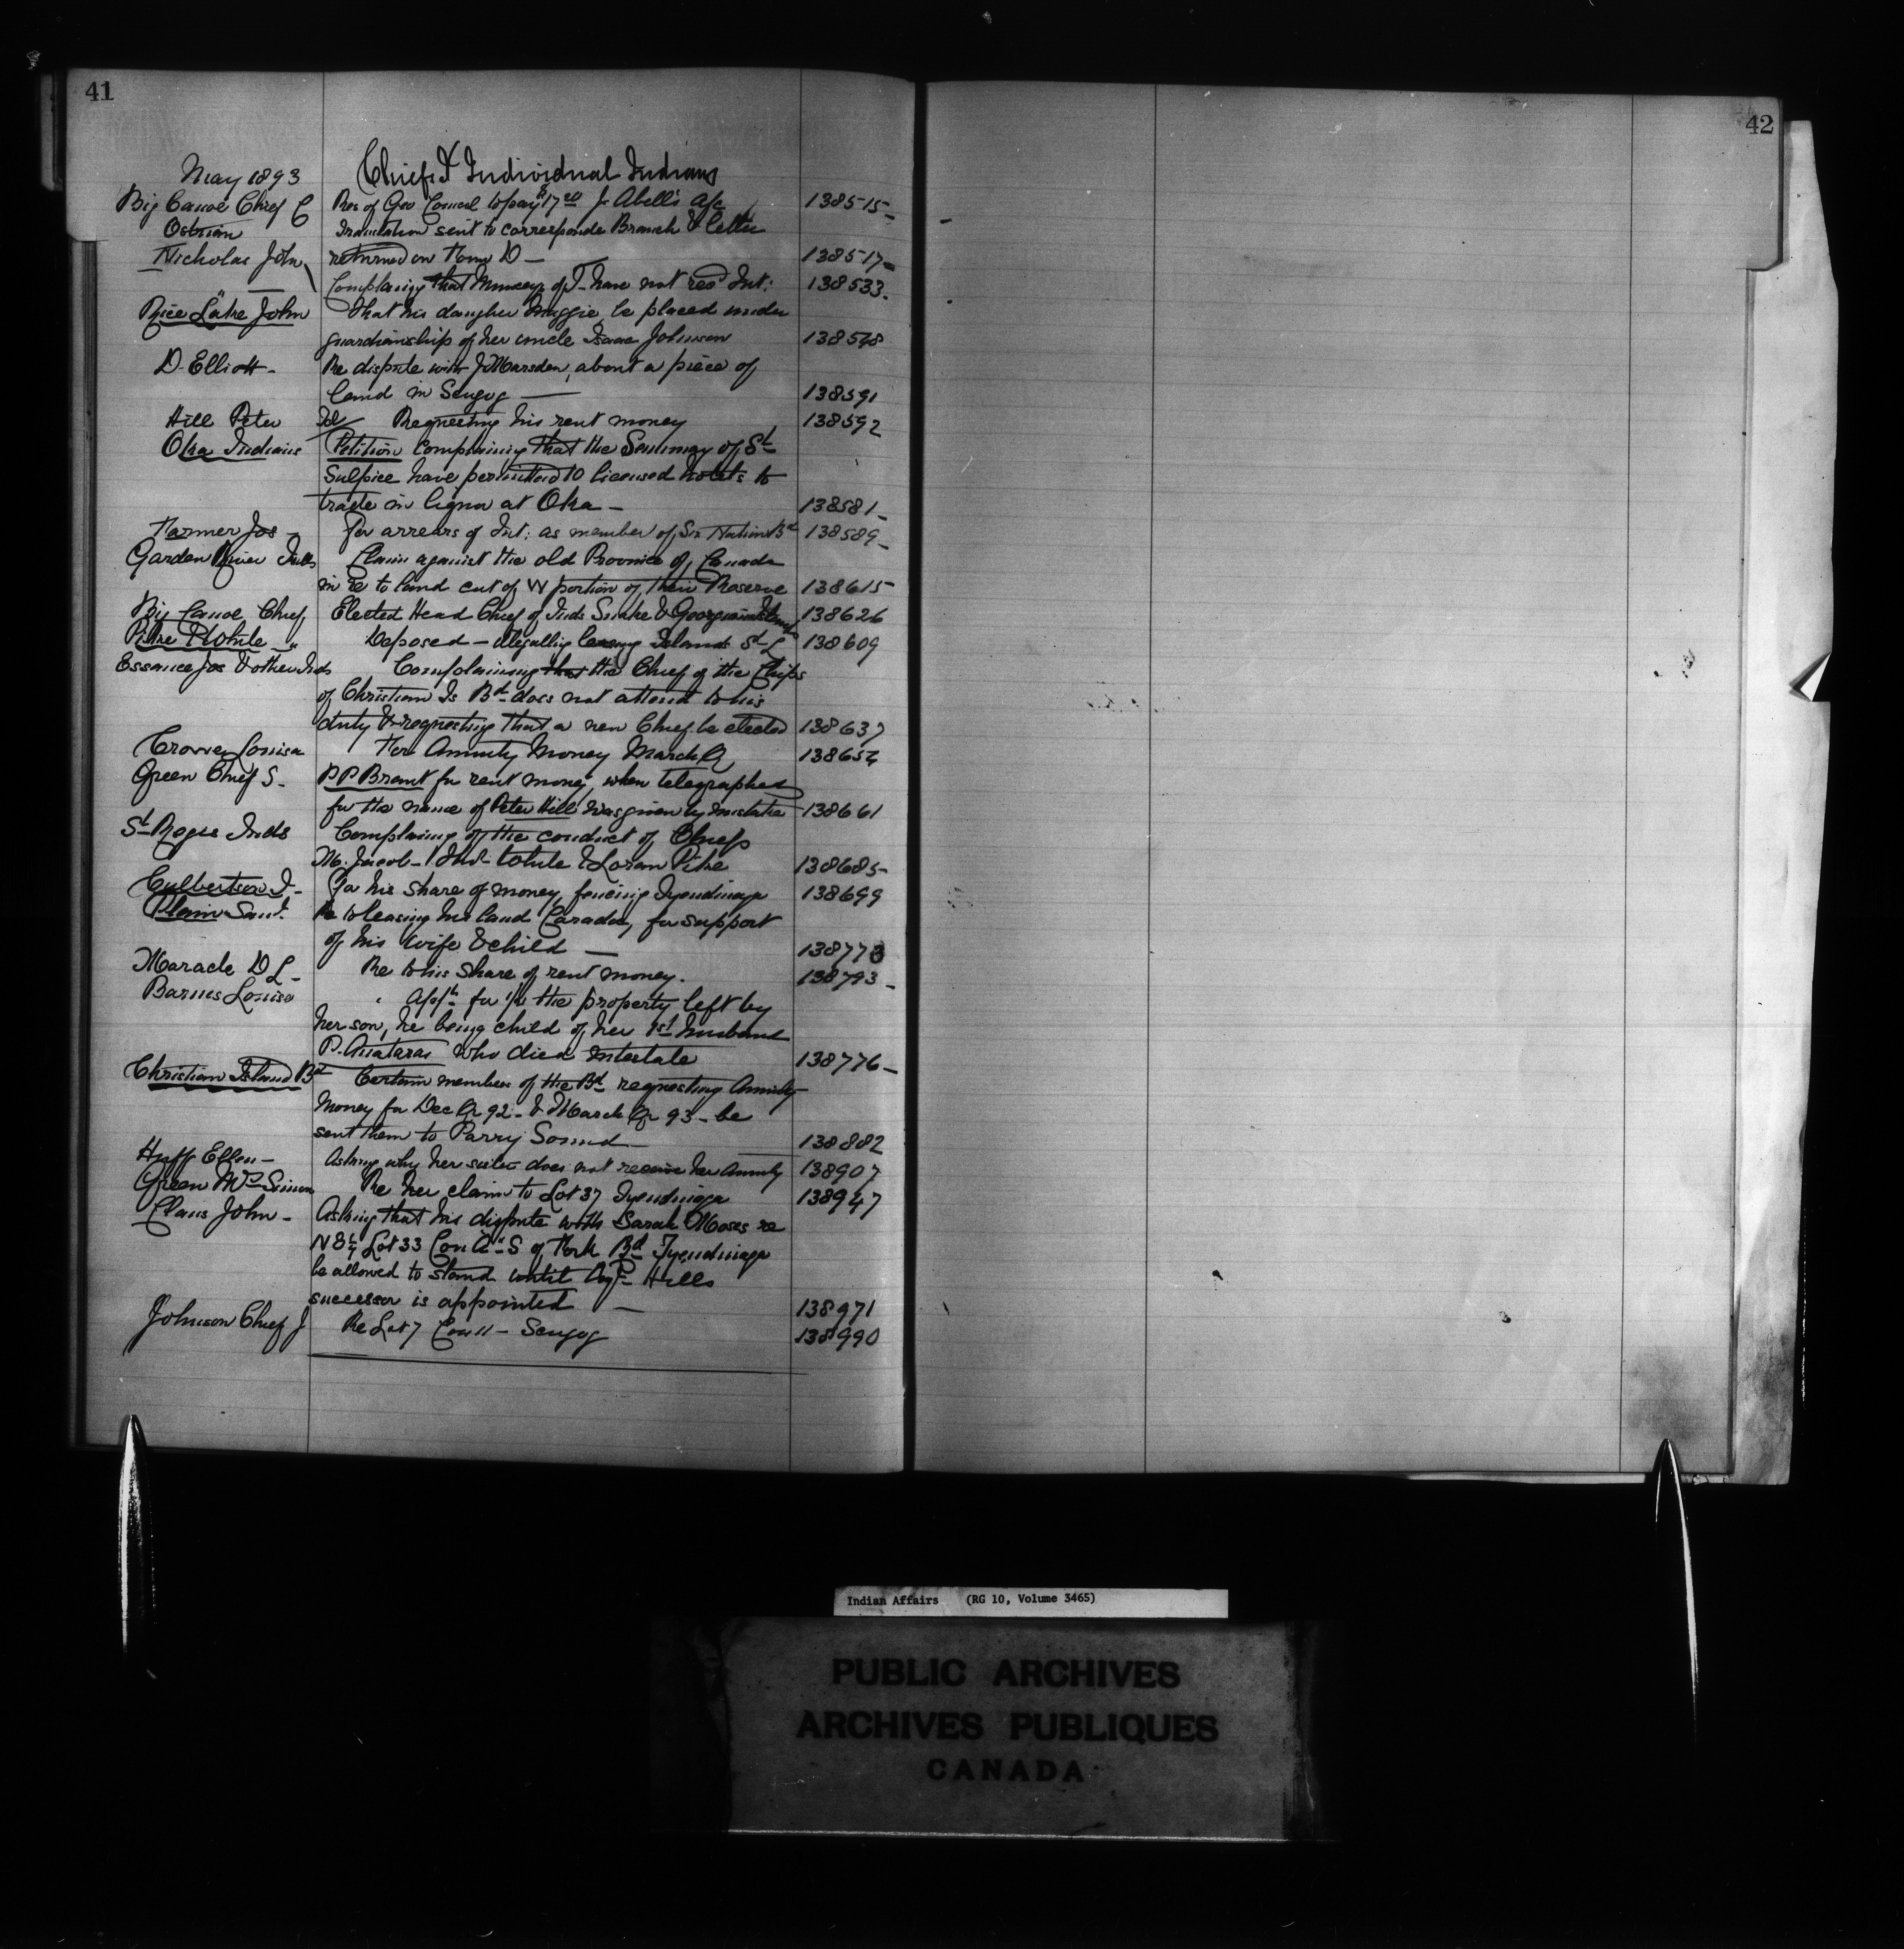 41
42
May 1893 Chiefs & Individual Indians
Big Canoe Chief C Res of Geo Council to pay $17.20 J. Abell's a/c 138515
Translation sent to corresponde Branch & letter
Nicholas John returned on Home D — 138517
Complaining that Munceys of T. have not recd Int: 138533
Rice Lake John That his daugher Maggie be placed under
guardianship of her uncle Isaac Johnson 138578
D. Elliott - Re dispute with J Marsden, about a piece of
land in Scugog — 138591
Hill Peter Tel Requesting his rent money 138592
Oka Indians Petition complaining that the Seminary of St
Sulpice have permitted 10 licensed hotels to
trade in liquor at Oka - 138581
Farmer Jos - for arrears of Int: as member of Six Nations Bd 138589
Garden River Inds Claim against the old Province of Canada
in re to land cut of W portion of their Reserve 138615
Big Canoe Chief Elected Head Chief of Inds Snake & Georgina Islands 138626
Pierre White " Deposed - illegally leasing Islands St L 138609
Essance Jos & other Inds Complaining that the Chief of the Chips
of Christian Is Bd does not attend to his
duty & requesting that a new Chief be elected 138637
Louisa For Annuity Money March Qr 138654
Green Chief S. P P Brant for rent money, when telegraphed
for the name of Peter Hill was given by mistake 138661
St Regis Inds Complaining of the conduct of Chiefs
M. Jacob - Jno White & Loran Pike 138685
Culbertson I - for his share of money, fencing Tyendinaga 138699
Plain Saml. Re to leasing his land Caradoc, for support
of his wife & child — 138773
Maracle D L - Re to his share of rent money. 138793
Barnes Louisa " Appln for 1/2 the property left by
her son, he being child of her 1st husband
P. who died intestate 138776
Christian Island Bd Certain members of the Bd requesting Annuity
Money for Dec Qr 92 - & March Qr 93 - be
sent them to Parry Sound — 138882
Huff Ellen - Asking why her sister does not receive her Annuity 138907
Green Mrs Simon Re her claim to Lot 37 Tyendinaga 138947
Claus John - Asking that his dispute with Sarah Moses re
Lot 33 Con A S of York Rd Tyendinaga
be allowed to stand until Agt Hills
successor is appointed — 138971
Johnson Chief J Re Lot 7 Con 11 - Scugog 138990
Indian Affairs (RG 10, Volume 3465)
PUBLIC ARCHIVES
ARCHIVES PUBLIQUES
CANADA